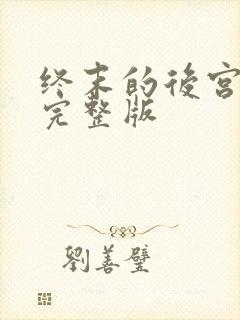 终末的後宫
完整版
劉善璧